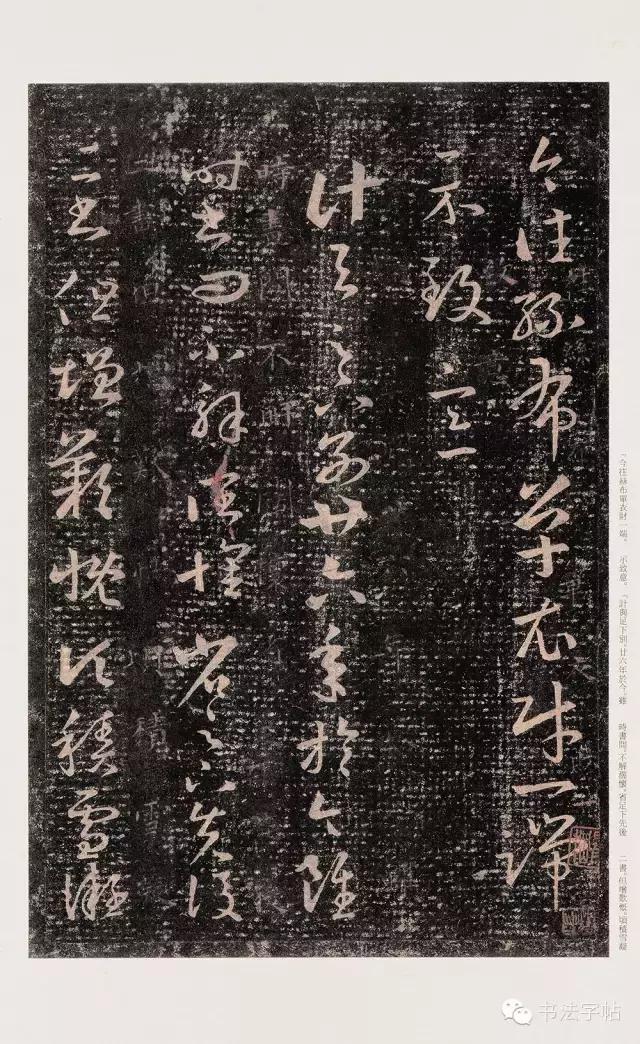 今往絲布單衣財一端
示致意
計與足下別廿六年於今雖
時書問不解闊懷省足下先後
二書但增歎慨頃積雪凝
「今往絲布單衣財一端。 示致意。「計與足下別、廿六年於今、雖 時書問、不解闊懷、省足下先後 二書、但增歎慨。頃積雪凝
书法字帖